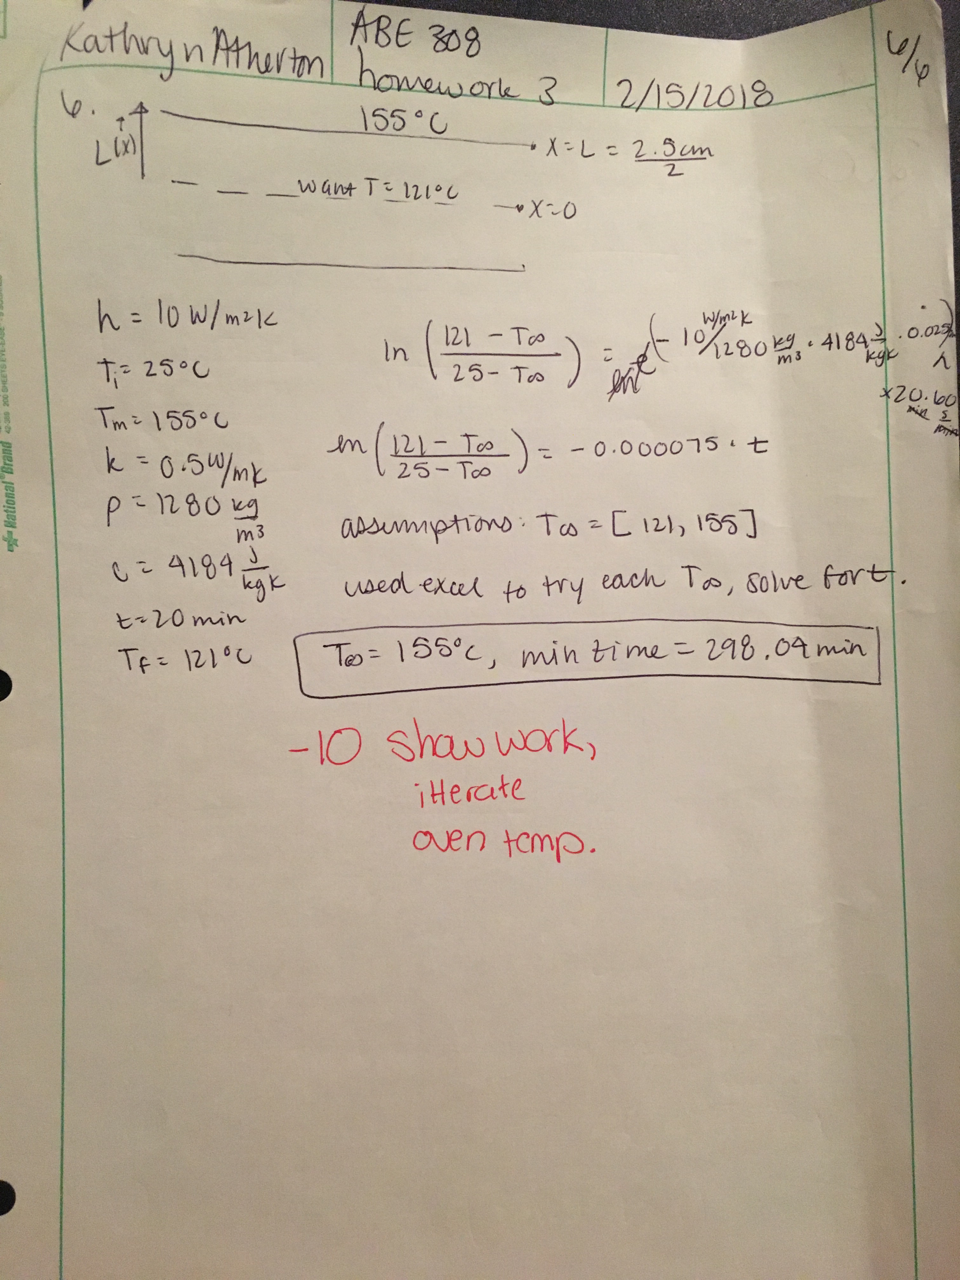 Kathryn Atherton
ABE 308
homework 3
2/15/2018
6/6
6.
L(x)
155°C
x=L = 2.5cm/2
want T = 121°C
x=0
h = 10 W/m²K
Ti = 25°C
Tm = 155°C
k = 0.5 W/mK
ρ = 1280 kg/m3
c = 4184 J/kgK
t = 20 min
Tf = 121°C
ln ((121 - T∞)/(25 - T∞)) = (-10 W/m²K / 1280 kg/m3 · 4184 J/kgK · 0.025/
×20 min · 60 s/min
ln ((121 - T∞)/(25 - T∞)) = -0.000075 · t
assumptions: T∞ = [121, 155]
used excel to try each T∞, solve for t.
T∞ = 155°C, min time = 298.04 min
-10 show work,
itterate
oven temp.
National Brand